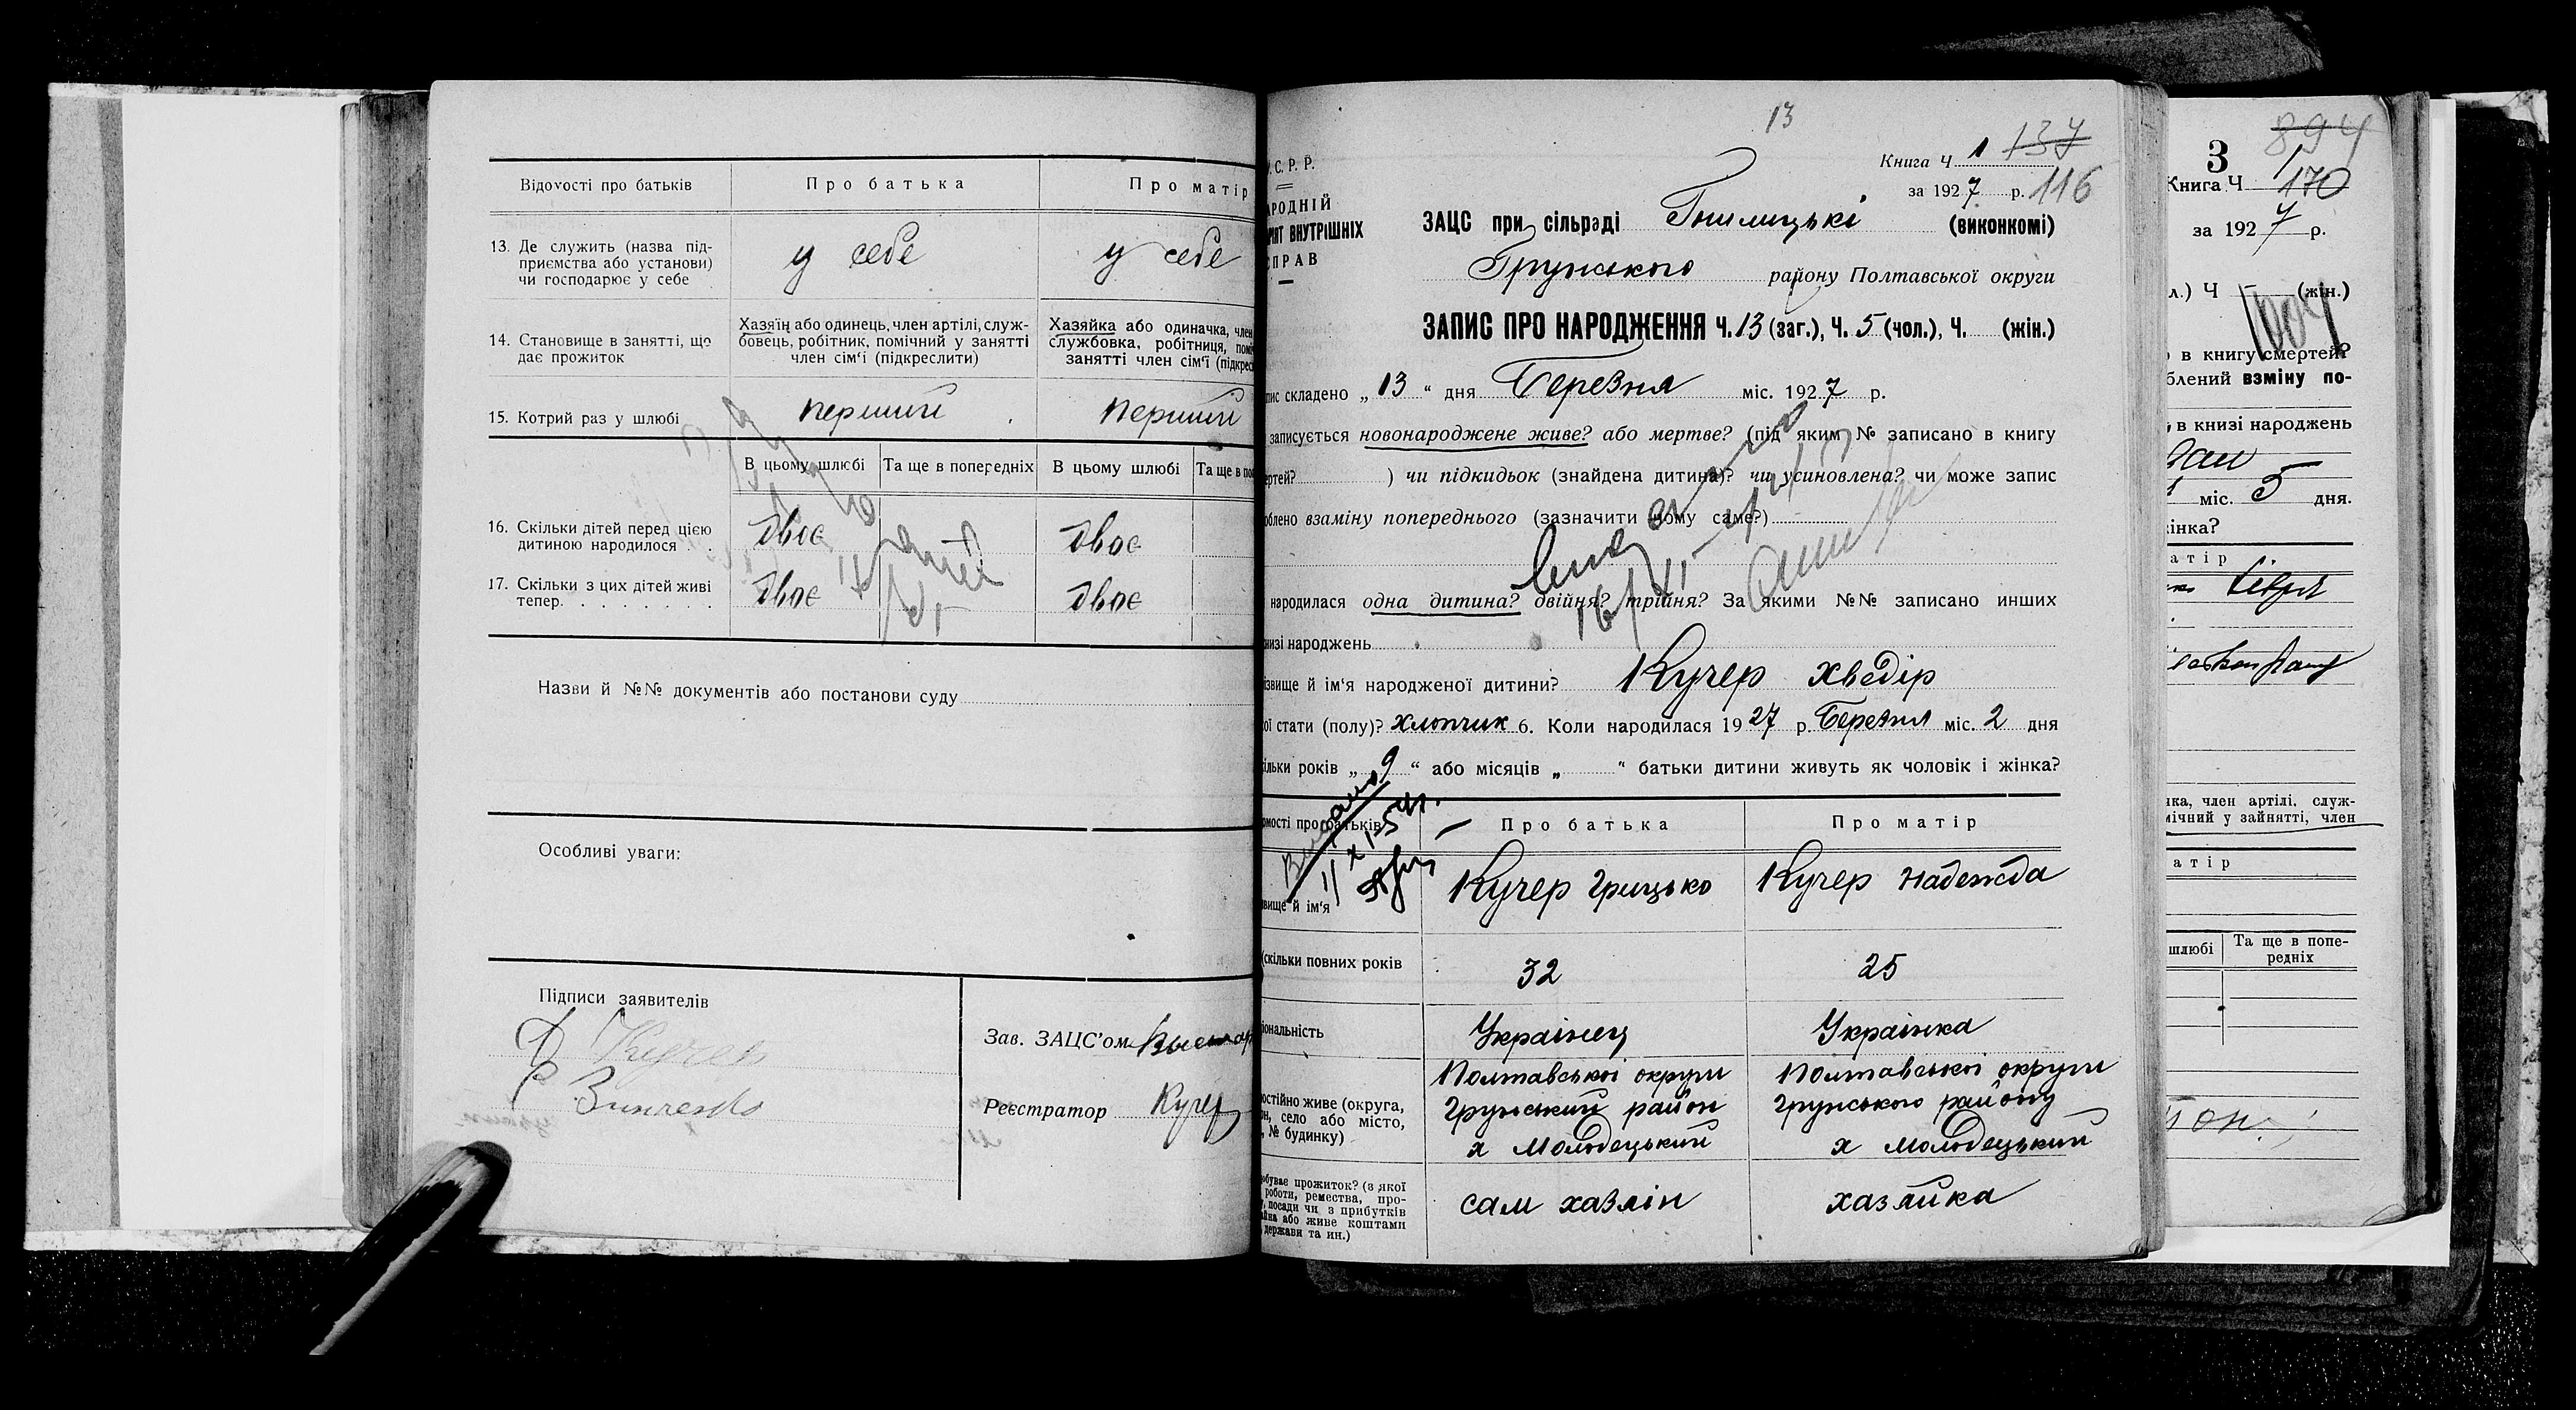 Відомості про батьків
Про батька
Про матір
13. Де служить (назва під-
приємства або установи)
чи господарює у себе
у себе
у себе
14. Становище в занятті, що
дає прожиток
Хазяїн або одинець, член артілі, служ-
бовець, робітник, помічний у занятті
член сім‘ї (підкреслити)
Хазяйка або одиначка, член
службовка, робітниця,
занятті член сім‘ї
15. Котрий раз у шлюбі
перший
перший
В цьому шлюбі
Та ще в попередніх
В цьому шлюбі
Та ще в
16. Скільки дітей перед цією
дитиною народилося . .
двоє
двоє
17. Скільки з цих дітей живі
тепер. . . . . . . .
двоє
двоє
Назви й №№ документів або постанови суду
Особливі уваги:
Підписи заявителів
Кучер
Зинченко
Зав. ЗАЦС’ом
Реєстратор Кучер
13
Книга Ч 1 137
за 1927 р. 116
С. Р. Р.
ВНУТРІШНІХ
СПРАВ
ЗАЦС при сільраді Гнилицькі (виконкомі)
Грунського району Полтавської округи
ЗАПИС ПРО НАРОДЖЕННЯ Ч. 13 (заг.), Ч. 5 (чол.), Ч. (жін.)
складено „ 13 “ дня Березня міс. 1927 р.
записується новонароджене живе? або мертве? (під яким № записано в книгу
) чи підкидьок (знайдена дитина)? чи усиновлена? чи може запис
взаміну попереднього (зазначити чому саме?)
народилася одна дитина? двійня? трійня? За якими №№ записано инших
народжень
й ім‘я народженої дитини? Кучер Хведір
стати (полу)? Хлопчик 6. Коли народилася 1927 р. Березня міс. 2 дня
років „ 9 “ або місяців „ “ батьки дитини живуть як чоловік і жінка?
Про батька
Про матір
й ім‘я
Кучер Грицько
Кучер Надежда
(скільки повних років
32
25
Українец
Українка
живе (округа,
село або місто,
№ будинку)
Полтавської округи
Грунський район
х Молодецький
Полтавської округи
Грунського району
х Молодецький
прожиток? (з якої
роботи, ремества, про-
посади чи з прибутків
або живе коштами
держави та ин.)
сам хазяїн
хазяйка
894
3
Книга Ч 170
за 1927 р.
Ч (жін.)
в книгу смертей?
взміну по-
в книзі народжень
міс. 5 дня.
член артілі, служ-
у зайнятті, член
шлюбі
Та ще в попе-
редніх